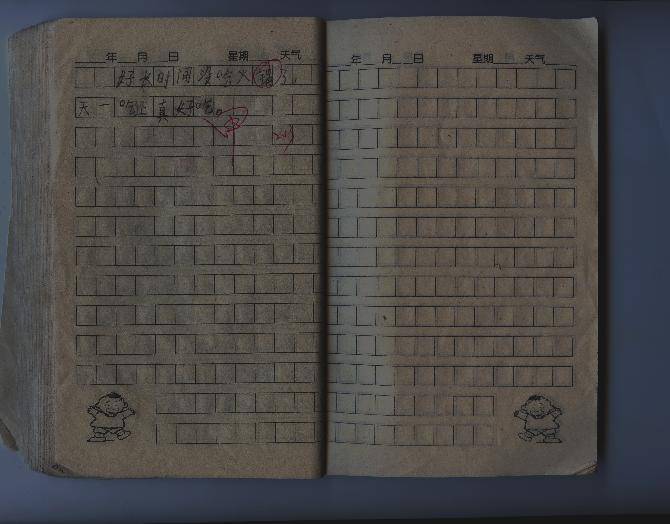 年 月 日 星期 天气
好长时间没吃火锅了
天一吃 真好吃。
年 月 日 星期 天气